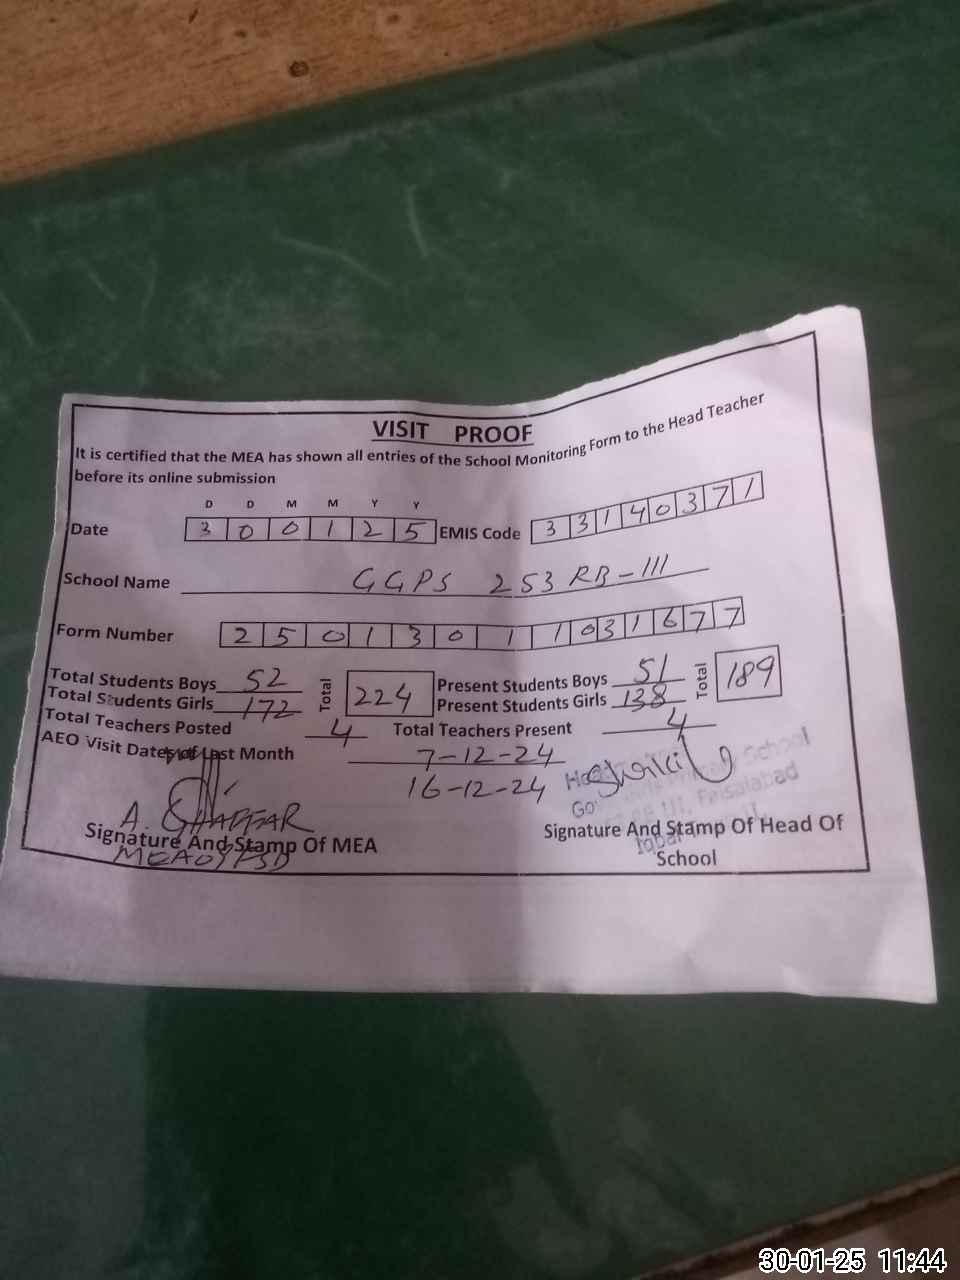 VISIT PROOF
It is certified that the MEA has shown all entries of the School Monitoring Form to the Head Teacher
before its online submission
D D M M Y Y
Date 3 0 0 1 2 5 EMIS Code 3 3 1 4 0 3 7 1
School Name GGPS 253 RB-III
Form Number 2 5 0 1 3 0 1 1 0 3 1 6 7 7
Total Students Boys 52 Total 224 Present Students Boys 51 Total 189
Total Students Girls 172 Present Students Girls 138
Total Teachers Posted 4 Total Teachers Present 4
AEO Visit Dates of Last Month 7-12-24
16-12-24
A. GHAFFAR
Head School
Faisalabad
Signature And Stamp Of MEA
Signature And Stamp Of Head Of
School
30-01-25 11:44